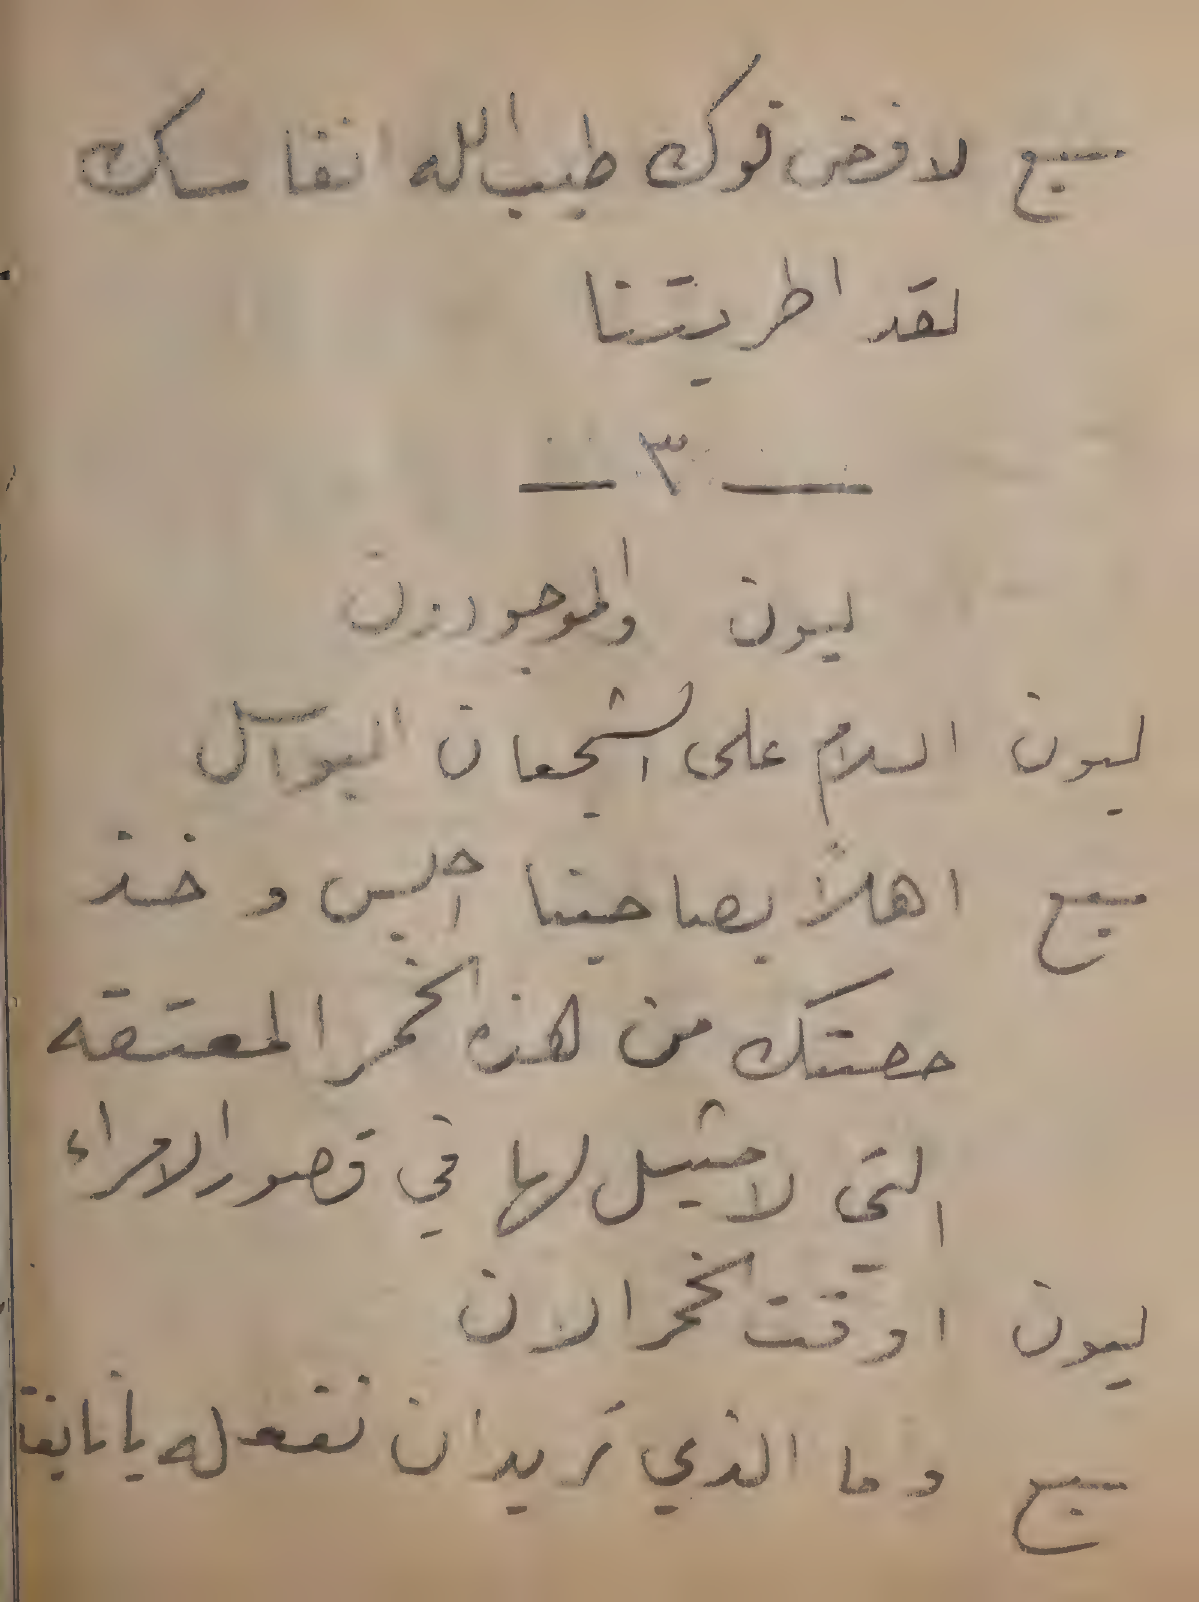 سبع لا فض فوك طيب الله انفاسك
لقد اطربتنا
— ٣ —
ليون والموجودون
ليون السلام على الشجعان البواسل
سبع اهلاً بصاحبنا اجلس وخذ
حصتك من هذه الخمر المعتقه
التي لا مثيل لها في قصور الامراء
ليون اوقت الخمر الان
سبع وما الذي تريد ان نفعله يا